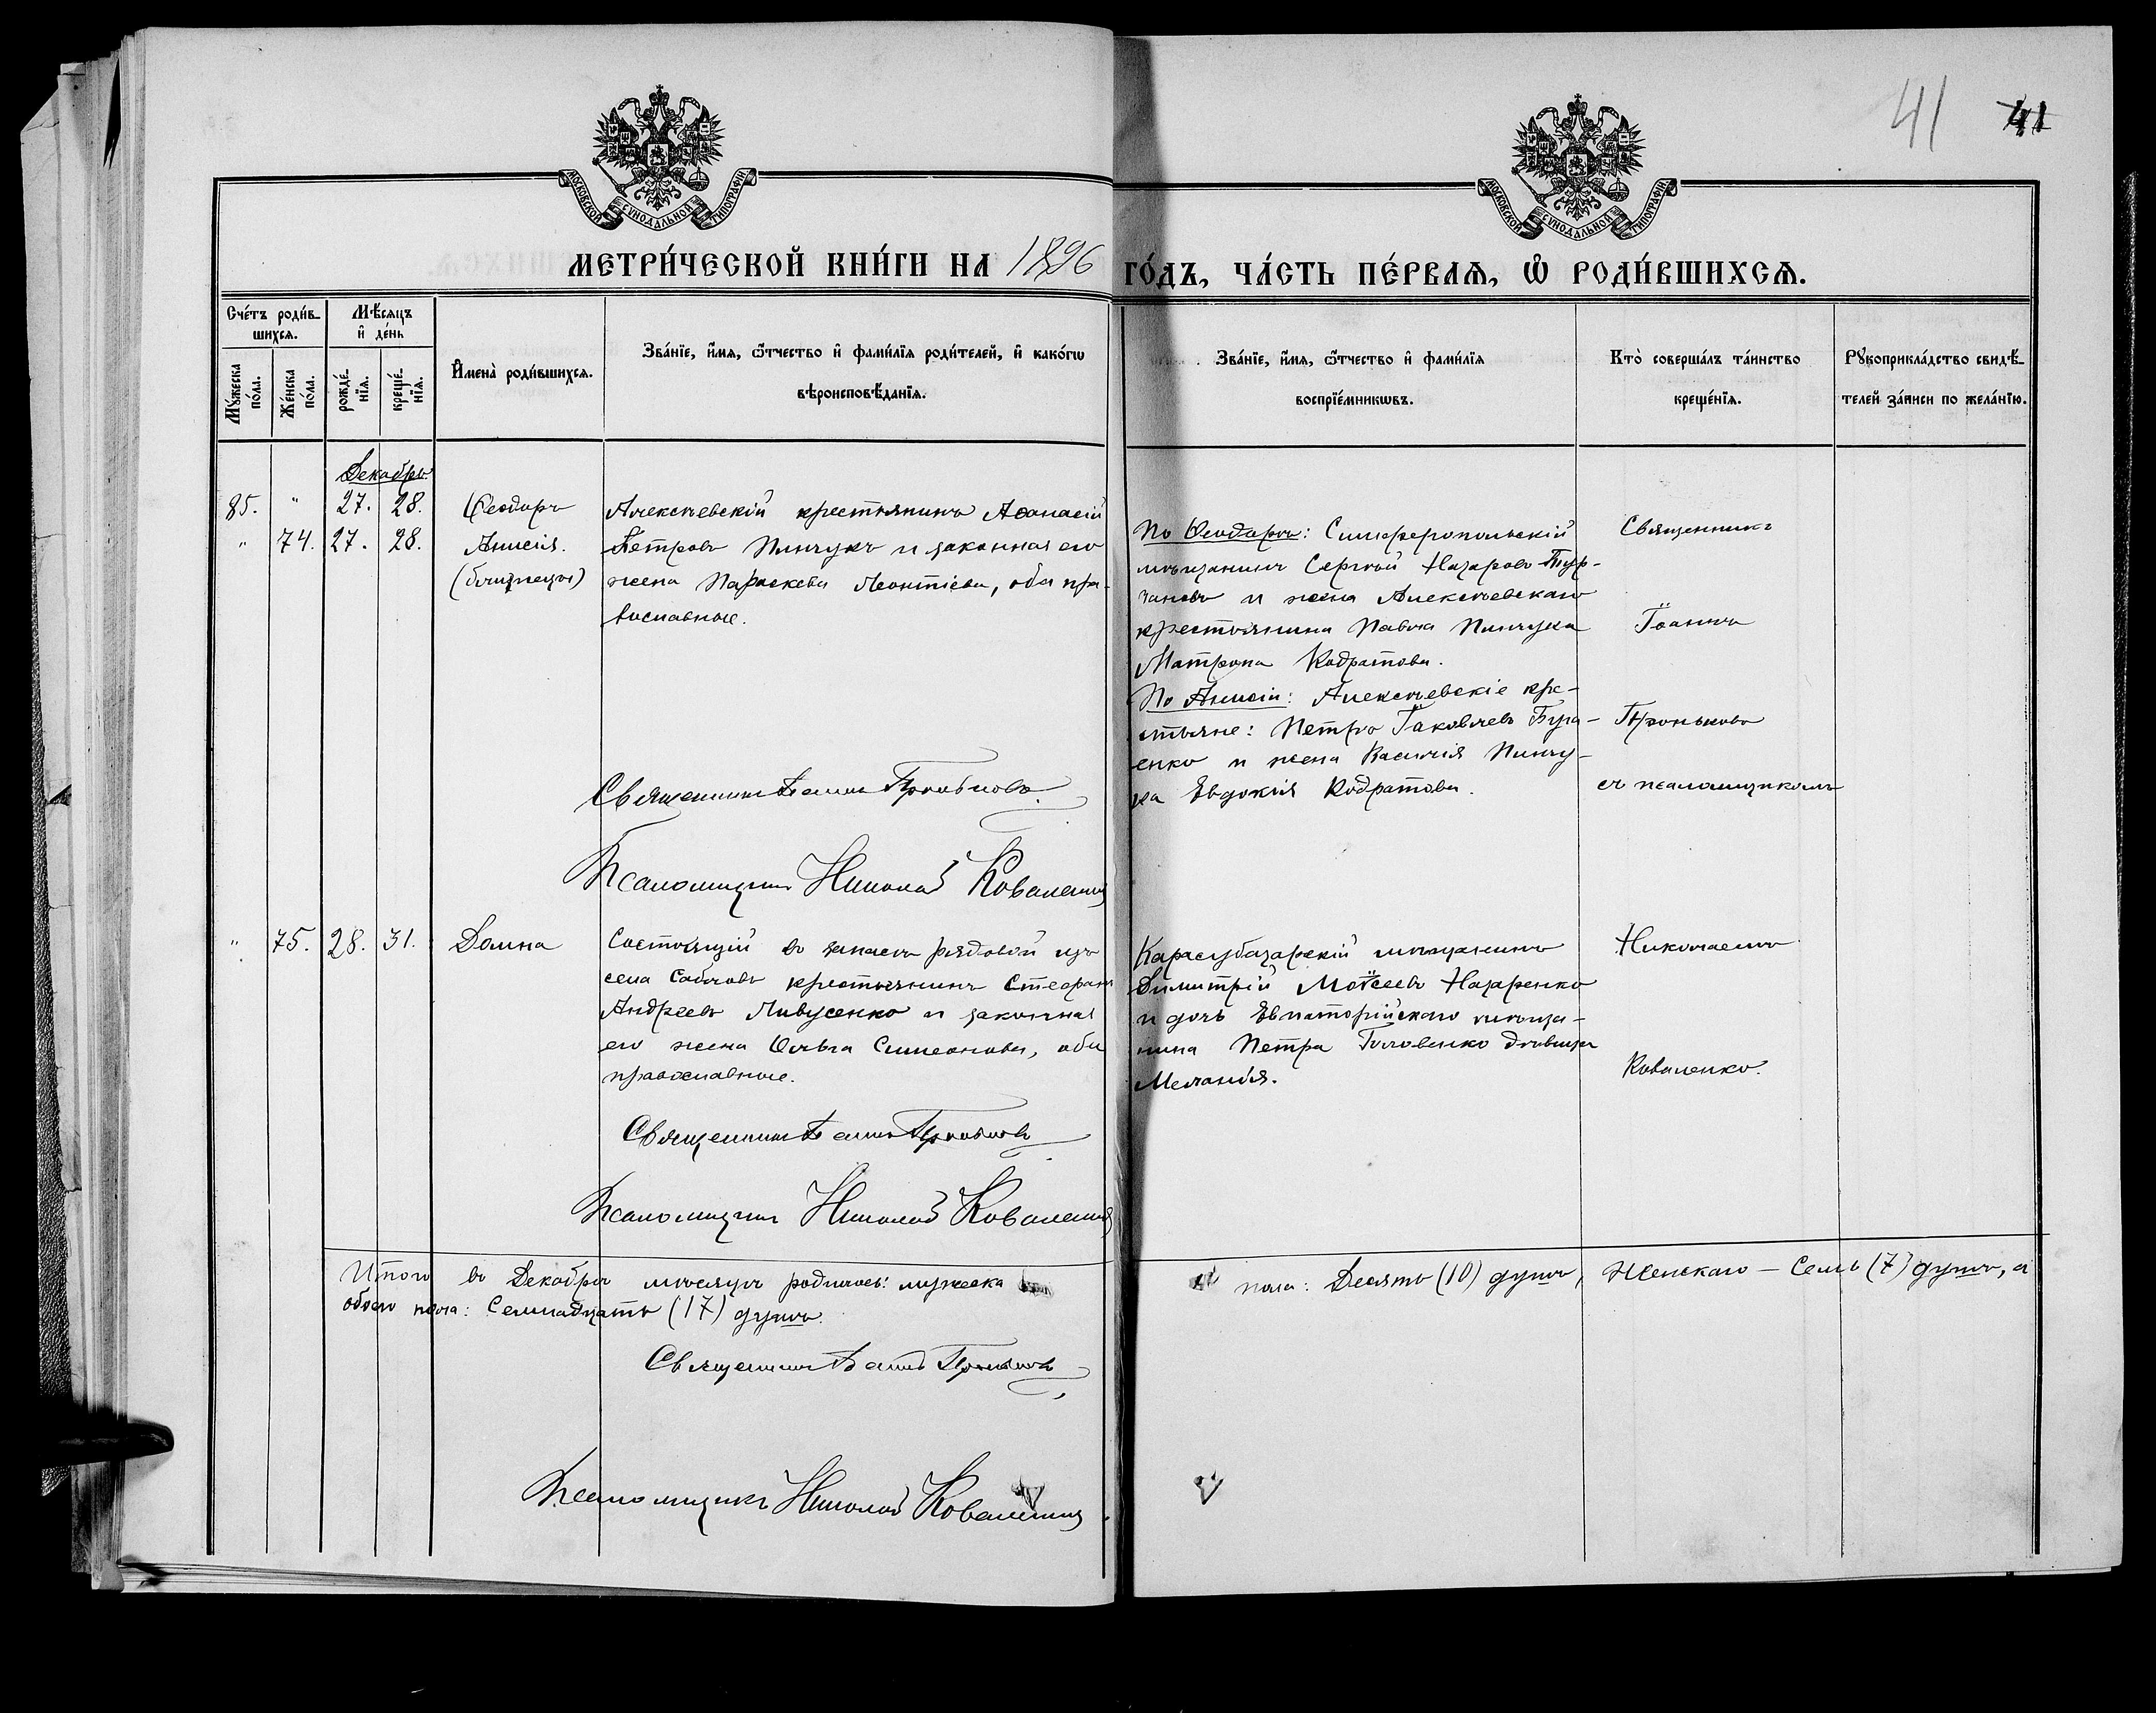 41 41
МОСКОВСКОЙ СѴНОДАЛЬНОЙ ТИПОГРАФІИ
МОСКОВСКОЙ СѴНОДАЛЬНОЙ ТИПОГРАФІИ
МЕТРИ́ЧЕСКОЙ КНИ́ГИ НА 1896 ГО́ДЪ, ЧА́СТЬ ПЕ́РВАѦ, Ѡ҆ РОДИ́ВШИХСѦ.
Сче́тъ роди́в-
шихсѧ.
Мѣ́сѧцъ
и҆ де́нь
Мꙋ́жеска
по́ла.
Же́нска
по́ла.
рожде́-
нїѧ.
креще́-
нїѧ.
И҆мена̀ роди́вшихсѧ.
Зва́нїе, и҆́мѧ, ѻ҆́тчество и҆ фами́лїѧ роди́телей, и҆ како́гѡ
вѣроисповѣ́данїѧ.
Зва́нїе, и҆́мѧ, ѻ҆́тчество и҆ фами́лїѧ
воспрїе́мникѡвъ.
Кто̀ соверша́лъ та́инство
креще́нїѧ.
Рꙋкоприкла́дство свидѣ́-
телей за́писи по жела́нїю.
Декабрь.
85. " 27. 28. Ѳеодоръ
" 74. 27. 28. Анисія.
(близнецы)
Алексѣевскій крестьянинъ Аѳанасій
Петровъ Пинчукъ и законная его
жена Параскева Леонтіева, оба пра-
вославные.
По Ѳеодорѣ: Симферопольскій
мѣщанинъ Сергѣй Назаровъ
и жена Алексѣевскаго
крестьянина Павла Пинчука
Матрона Кодратова.
По Анисіи: Алексѣевскіе кре-
стьяне: Петръ Іаковлевъ
енко и жена Василія Пинчу-
ка Евдокія Кодратова.
Священникъ
Іоаннъ
Проньковъ
съ псаломщикомъ
Священникъ Іоаннъ Проньковъ.
Псаломщикъ Николай Коваленко
" 75. 28. 31. Домна
Состоящій въ запасѣ рядовой изъ
села крестьянинъ Стефанъ
Андреевъ Ливусенко и законная
его жена Ольга Симеонова, оба
православные.
Карасубазарскій мѣщанинъ
Димитрій Моѵсеевъ Назаренко
и дочь Евпаторійскаго мѣща-
нина Петра Головенко дѣвица
Меланія.
Николаемъ
Коваленко.
Священникъ Іоаннъ Проньковъ
Псаломщикъ Николай Коваленко
Итого въ Декабрѣ мѣсяцѣ родилось: мужеска пола: Десять (10) душъ, Женскаго — Семь (7) душъ, а
обоего пола: Семнадцать (17) душъ.
Священникъ Іоаннъ Проньковъ
Псаломщикъ Николай Коваленко